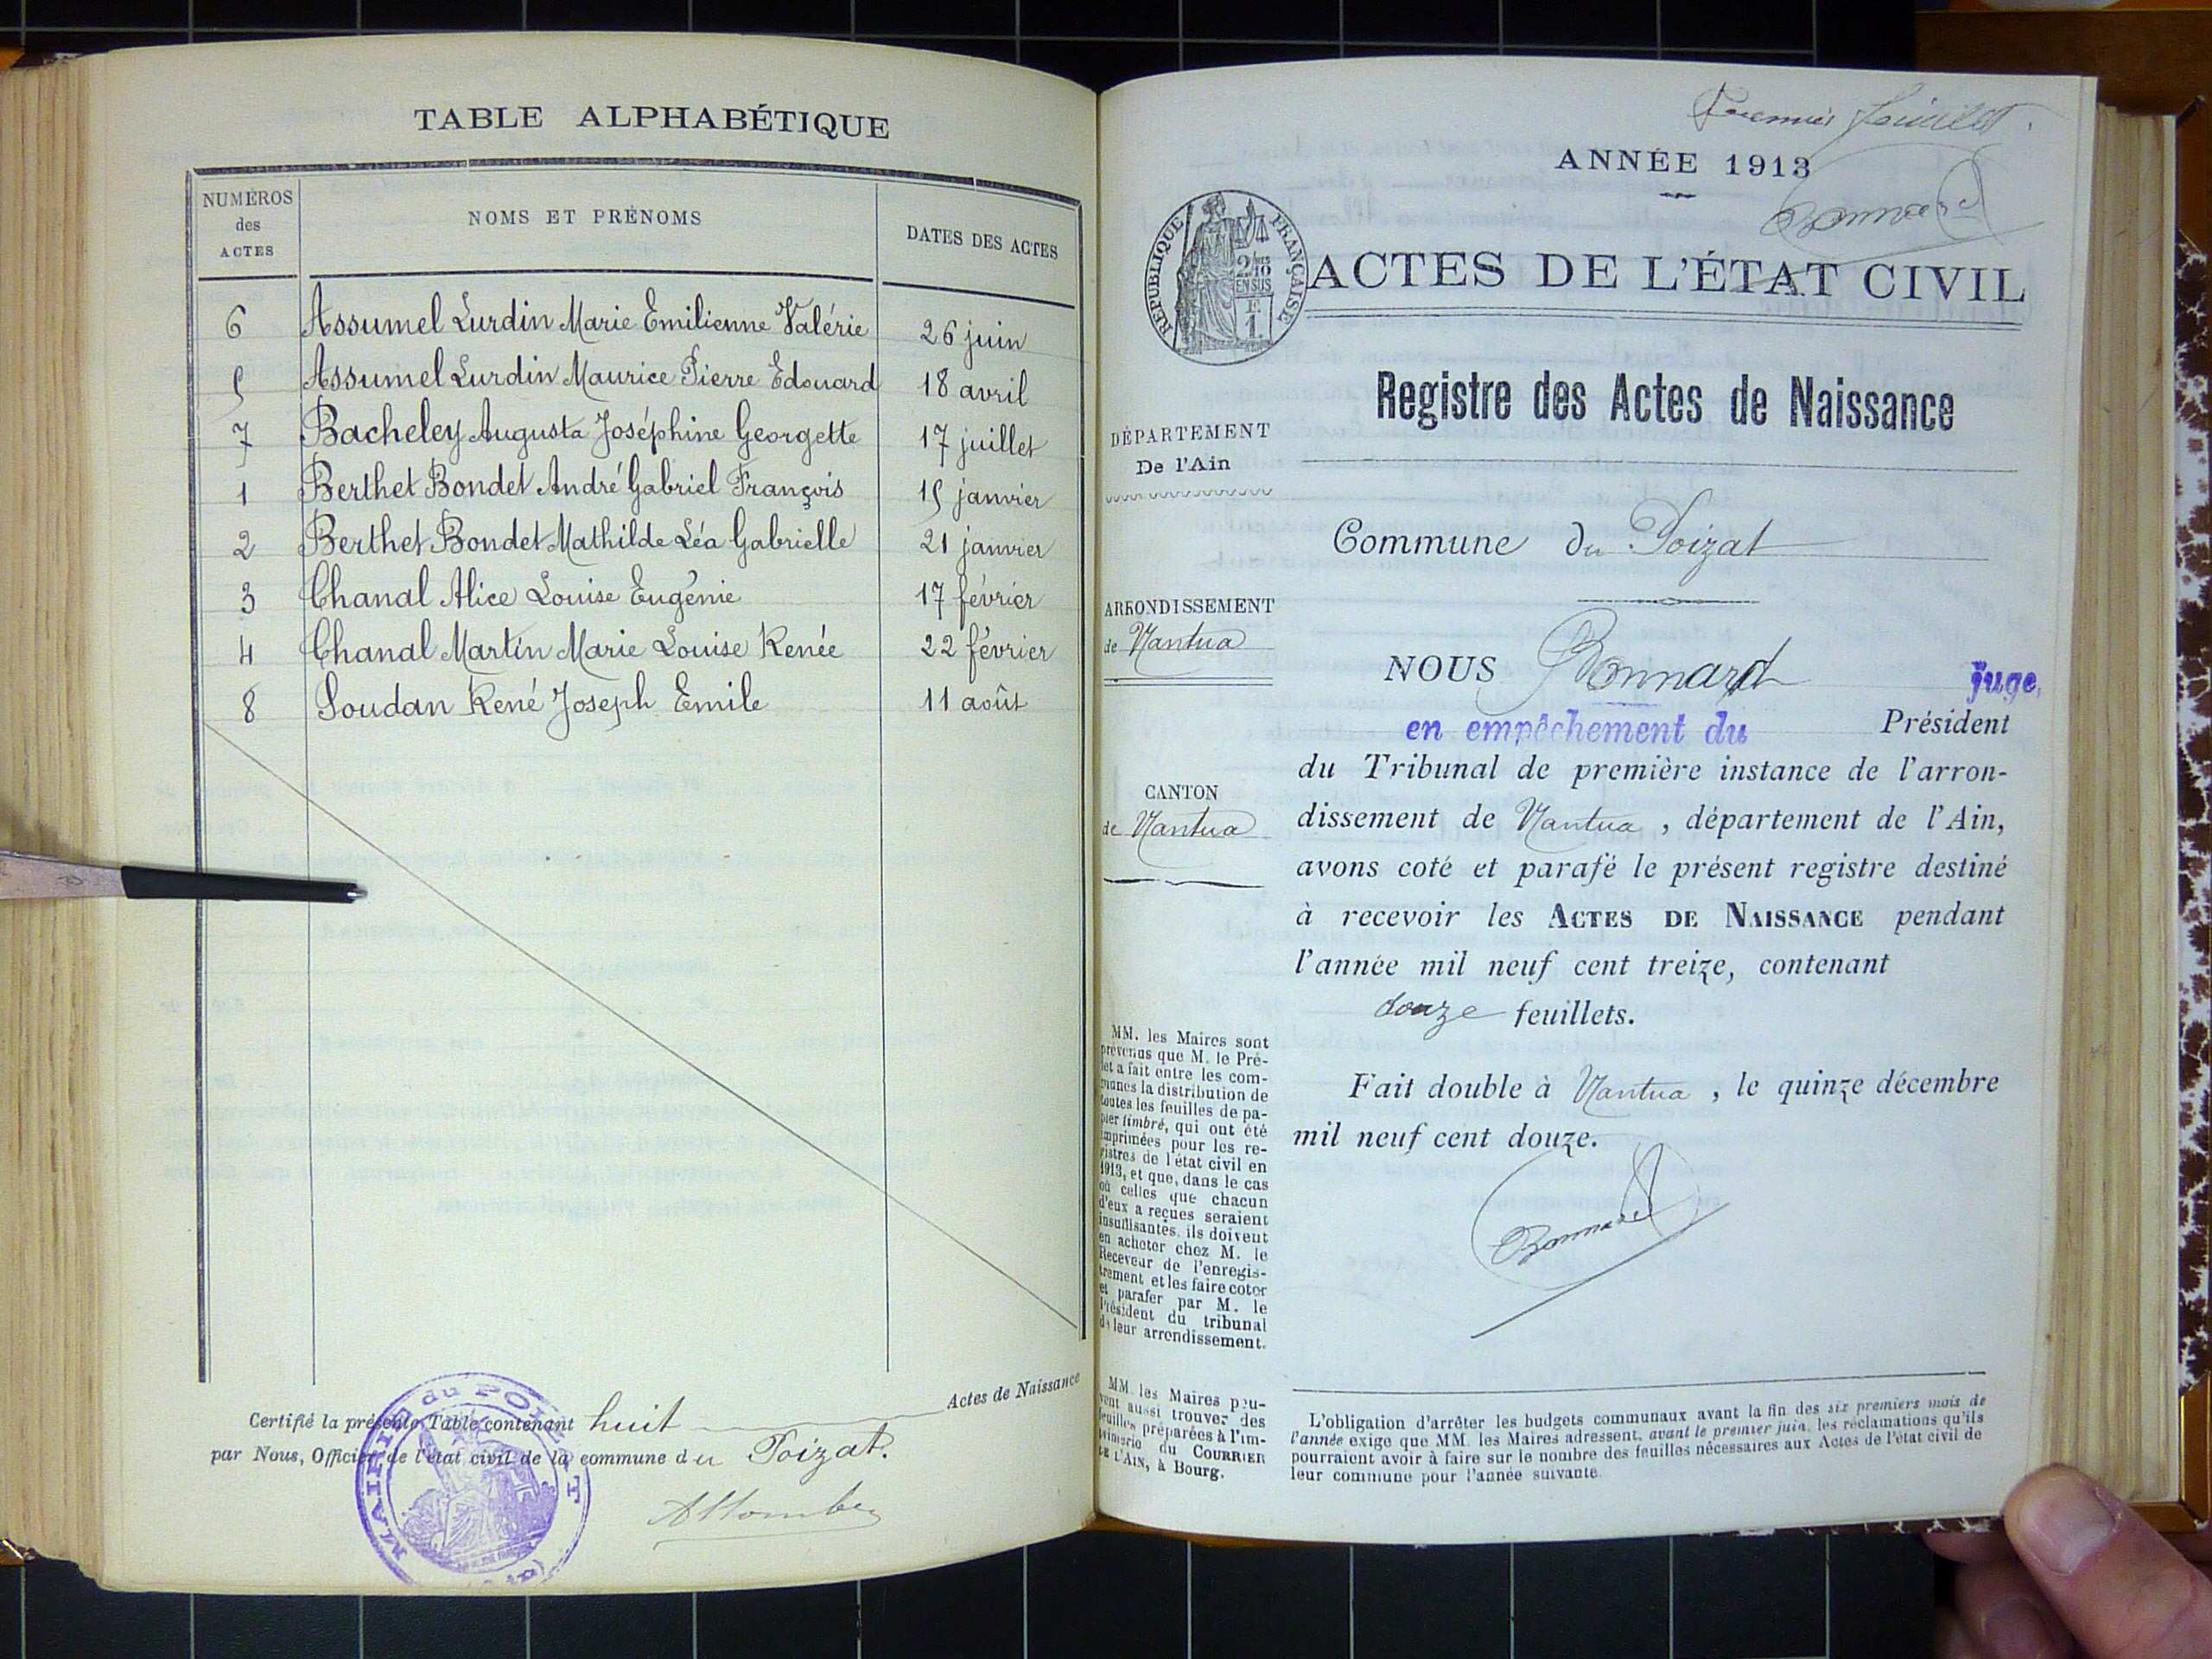 TABLE ALPHABÉTIQUE
NUMÉROS
des
ACTES
NOMS ET PRÉNOMS
DATES DES ACTES
6 Assumel Lurdin Marie Emilienne Valérie 26 juin
5 Assumel Lurdin Maurice Pierre Edouard 18 avril
7 Bacheley Augusta Joséphine Georgette 17 juillet
1 Berthet Bondet André Gabriel François 15 janvier
2 Berthet Bondet Mathilde Léa Gabrielle 21 janvier
3 Chanal Alice Louise Eugénie 17 février
4 Chanal Martin Marie Louise Renée 22 février
8 Soudan René Joseph Emile 11 août
Certifié la présente Table contenant huit Actes de Naissance
par Nous, Officier de l'état civil de la commune du Poizat.
MAIRIE du POIZAT
Premier feuillet.
ANNÉE 1913
Bonnard
RÉPUBLIQUE FRANÇAISE
2/10
EN SUS
F.
1.
ACTES DE L'ÉTAT CIVIL
Registre des Actes de Naissance
DÉPARTEMENT
De l'Ain
Commune du Poizat
ARRONDISSEMENT
de Nantua
NOUS Bonnard juge,
en empêchement du Président
du Tribunal de première instance de l'arron-
dissement de Nantua, département de l'Ain,
avons coté et parafé le présent registre destiné
à recevoir les ACTES DE NAISSANCE pendant
l'année mil neuf cent treize, contenant
douze feuillets.
Fait double à Nantua, le quinze décembre
mil neuf cent douze.
Bonnard
CANTON
de Nantua
MM. les Maires sont
prévenus que M. le Pré-
fet a fait entre les com-
munes la distribution de
toutes les feuilles de pa-
pier timbré, qui ont été
imprimées pour les re-
gistres de l'état civil en
1913, et que, dans le cas
où celles que chacun
d'eux a reçues seraient
insuffisantes, ils doivent
en acheter chez M. le
Receveur de l'enregis-
trement et les faire coter
et parafer par M. le
Président du tribunal
de leur arrondissement.
MM. les Maires peu-
vent aussi trouver des
feuilles préparées à l'im-
primerie du COURRIER
DE L'AIN, à Bourg.
L'obligation d'arrêter les budgets communaux avant la fin des six premiers mois de
l'année exige que MM. les Maires adressent, avant le premier juin, les réclamations qu'ils
pourraient avoir à faire sur le nombre des feuilles nécessaires aux Actes de l'état civil de
leur commune pour l'année suivante.